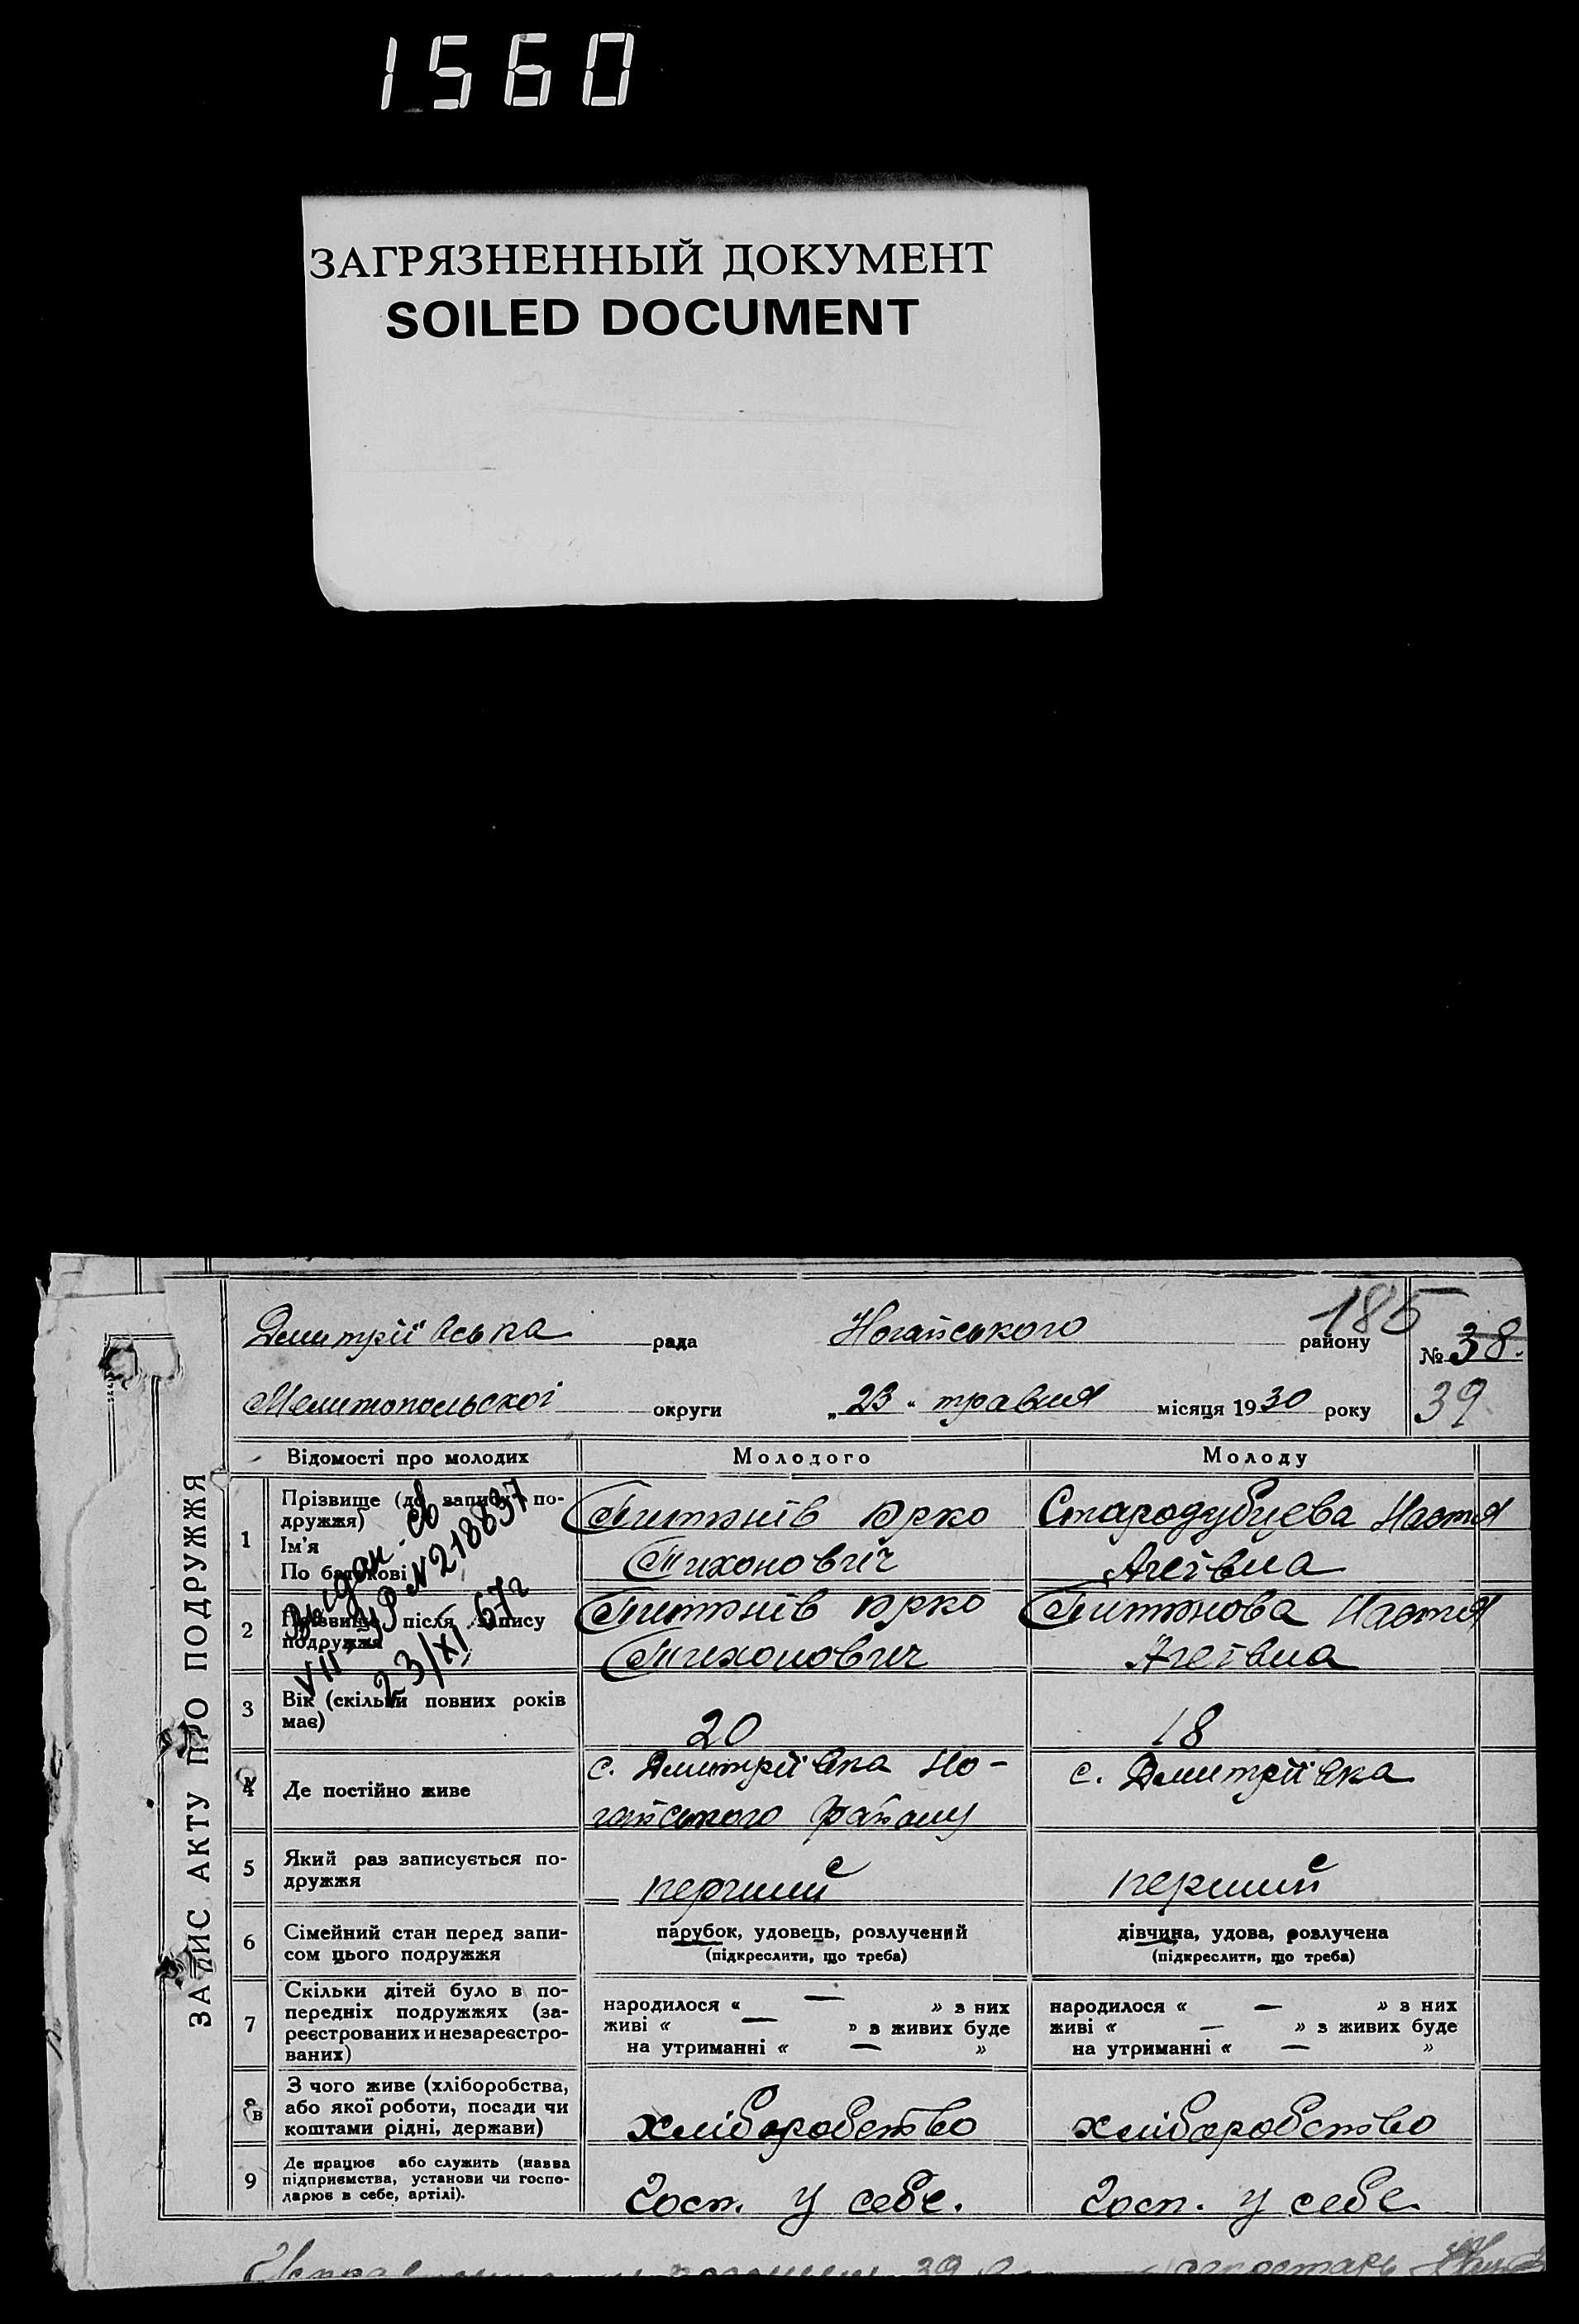 1560
ЗАГРЯЗНЕННЫЙ ДОКУМЕНТ
SOILED DOCUMENT
ЗАПИС АКТУ ПРО ПОДРУЖЖЯ
Дмитріївська рада Ногайського району 185 № 38.
Мелитопольскоі округи „23" травня місяця 1930 року 39
Відомості про молодих Молодого Молоду
1 Прізвище (до запису по-
дружжя)
Ім'я
По батькові
Юрко
Тихонович
Стародубцева Настя
Агеївна
2 Прізвище після запису
подружжя
Юрко
Тихонович
Настя
Агеївна
Видан
VII ЯР N 218837
23/XI 67г
3 Вік (скільки повних років
має)
20 18
4 Де постійно живе
с. Дмитріївка Но-
гайського району
с. Дмитріївка
5 Який раз записується по-
дружжя
перший перший
6 Сімейний стан перед запи-
сом цього подружжя
парубок, удовець, розлучений
(підкреслити, що треба)
дівчина, удова, розлучена
(підкреслити, що треба)
7 Скільки дітей було в по-
передніх подружжях (за-
реєстрованих и незареєстро-
ваних)
народилося « — » з них
живі « — » з живих буде
на утриманні « — »
народилося « — » з них
живі « — » з живих буде
на утриманні « — »
8 З чого живе (хліборобства,
або якої роботи, посади чи
коштами рідні, держави)
хліборобство хліборобство
9 Де працює або служить (назва
підприємства, установи чи госпо-
дарює в себе, артілі).
Госп. у себе. Госп. у себе.